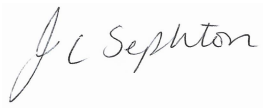 J C Sephton